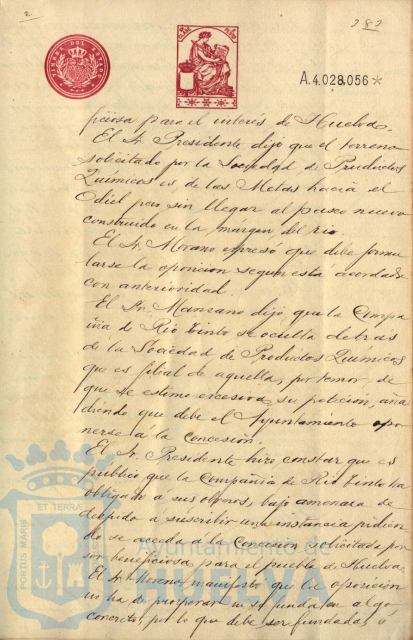 2
282
TIMBRE DEL ESTADO
A.4.028.056*
ficiosa para el interés de Huelva.
El Sr. Presidente dijo que el terreno
solicitado por la Sociedad de Productos
Químicos es de las Metas hacia el
Odiel pero sin llegar al paseo nuevo
construido en la margen del río.
El Sr. Morano expresó que debe formu
larse la oposicion segun esta acordado
con anterioridad.
El Sr. Manzano dijo que la Compa
ñia de Rio Tinto se oculta detrás
de la Sociedad de Productos Químicos
que es filial de aquella, por temor de
que se estime excesiva su peticion, aña
diendo que debe el Ayuntamiento opo
nerse á la concesión.
El Sr. Presidente hizo constar que es
publico que la Compañia de Rio Tinto ha
obligado a sus obreros, bajo amenaza de
despido a suscribir una instancia pidien
do se acceda á la Concesion solicitada por
ser beneficiosa para el pueblo de Huelva.
El Sr. Moreno manifestó que la oposicion
no ha de prosperar si no se funda en algo
concreto, por lo que debe ser fundada ó
PORTUS MARIS ET TERRA
Ayuntamiento de
HUELVA